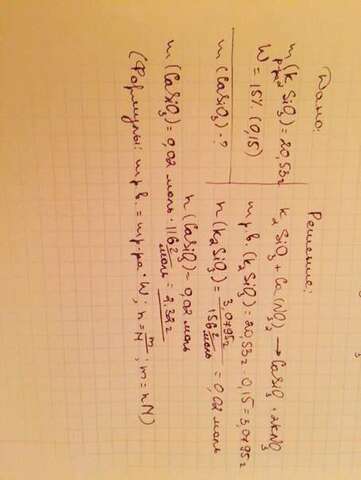 Дано:
m(K₂SiO₃) = 20,53г
р-ра
W = 15% (0,15)
m(CaSiO₃) - ?
Решение:
K₂SiO₃ + Ca(NO₃)₂ → CaSiO₃ + 2KNO₃
m р.в. (K₂SiO₃) = 20,53г · 0,15 = 3,0795г
n(K₂SiO₃) = 3,0795г / 156 г/моль = 0,02 моль
n(CaSiO₃) = 0,02 моль
m(CaSiO₃) = 0,02 моль · 116 г/моль = 2,32г
(Формулы: m р.в. = m р-ра · W; n = m/M; m = nM)